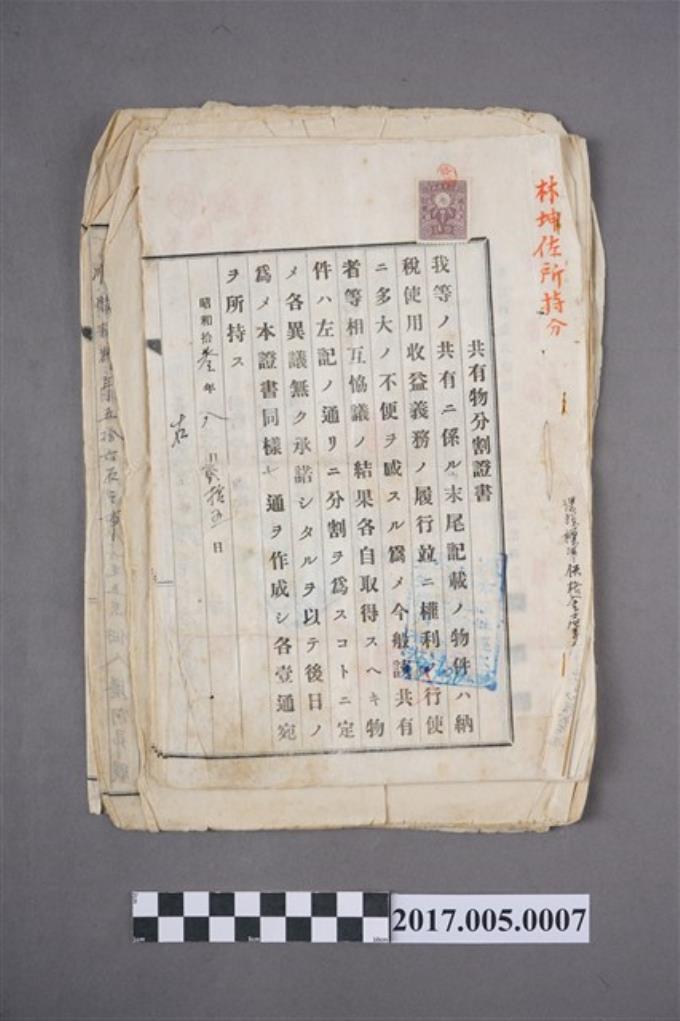 林坤佐所持分
共有物分割證書
我等ノ共有ニ係ル末尾記載ノ物件ハ納
稅使用收益義務ノ履行並ニ權利ノ行使
ニ多大ノ不便ヲ感スル爲メ今般該共有
者等相互協議ノ結果各自取得スヘキ物
件ハ左記ノ通リニ分割ヲ爲スコトニ定
メ各異議無ク承諾シタルヲ以テ後日ノ
爲メ本證書同樣七通ヲ作成シ各壹通宛
ヲ所持ス
昭和拾叁年八月貳拾五日
右
2017.005.0007